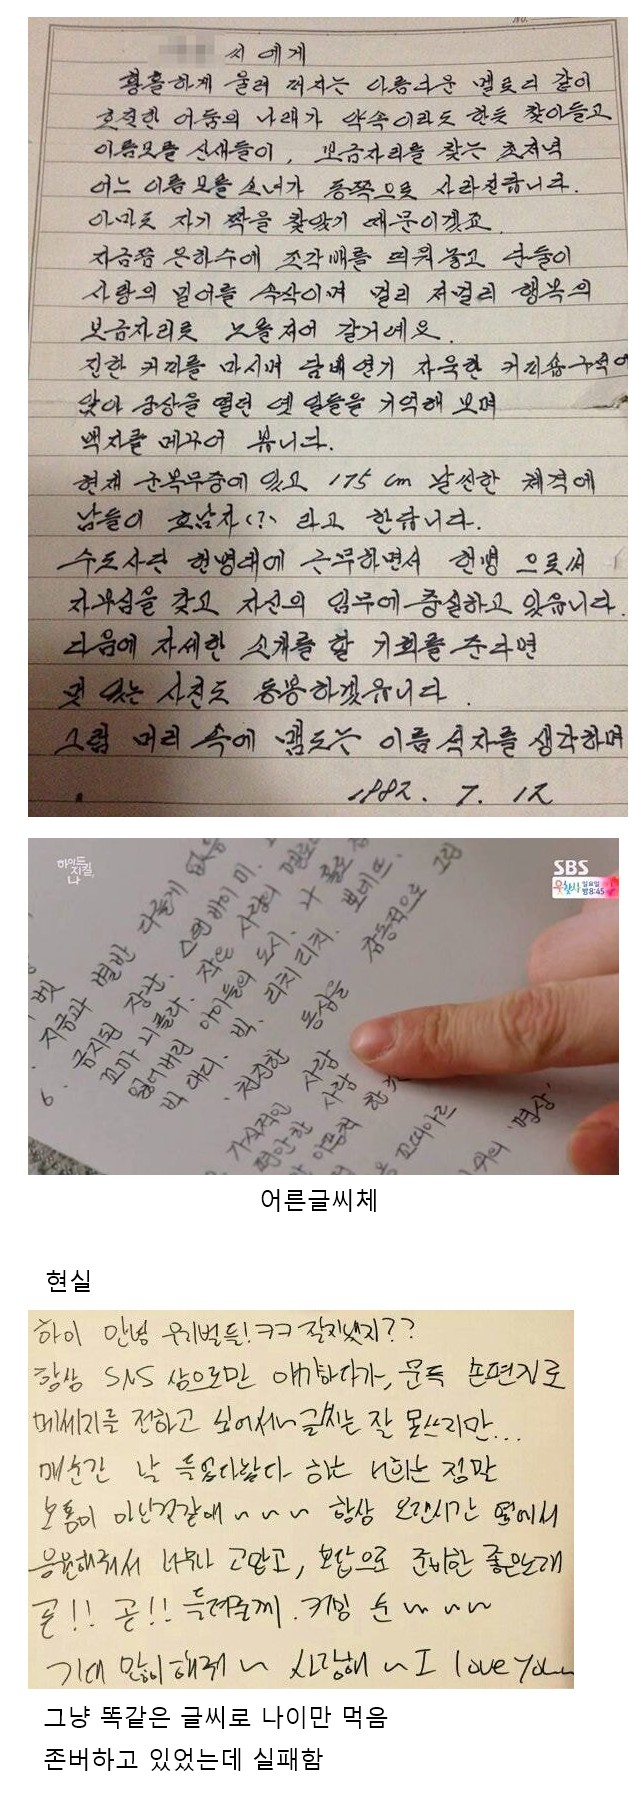 씨 에게
황홀하게 울려 퍼지는 아름다운 멜로디 같이
호젓한 어둠의 나래가 약속이라도 한듯 찾아들고
이름모를 산새들이, 보금자리를 찾는 초저녁
어느 이름 모를 소녀가 동쪽으로 사라진답니다.
아마도 자기 짝을 찾았기 때문이겠죠.
지금쯤 은하수에 조각배를 띄워놓고 둘이
사랑의 밀어를 속삭이며 멀리 저멀리 행복의
보금자리로 노를저어 갈거예요.
진한 커피를 마시며 담배연기 자욱한 커피숍구석에
앉아 공상을 떨던 옛 일들을 기억해 보며
백지를 메꾸어 봅니다.
현재 군복무중에 있고 175 cm 날씬한 체격에
남들이 호남자(?) 라고 한답니다.
수도사단 헌병대에 근무하면서 헌병 으로써
자부심을 갖고 자신의 임무에 충실하고 있읍니다.
다음에 자세한 소개를 할 기회를 준다면
멋 있는 사진도 동봉하겠읍니다.
그럼 머리 속에 맴도는 이름 석자를 생각하며
1982. 7. 12
하이드
지킬,
나
SBS
일요일
밤8:45
벳
지금과 별반 다를게 없음
6. 금지된 장난. 스탠바이미.
꼬마 니콜라. 작은 사랑의 멜로디
잃어버린 아이들의 도시. 나 홀로
빅 대디. 빅. 리치리치. 뽀네뜨.
천진한 동심을 감동적으로 그림
가식적인 사람
편안한 사람
'명상'
어른글씨체
현실
하이 안녕 우리벌들!ㅋㅋ 잘지냈지??
항상 SNS 상으로만 얘기하다가, 문득 손편지로
메세지를 전하고 싶어서~ 글씨는 잘 못쓰지만...
매순간 날 들었다놨다 하는 너희는 정말
보통이 아닌것같애~~~ 항상 오랜시간 옆에서
응원해줘서 너무나 고맙고, 보답으로 준비한 좋은노래
곧!! 곧!! 들려줄께. 커밍 순~~~
기대 많이해줘~ 사랑해~ I love you~
그냥 똑같은 글씨로 나이만 먹음
존버하고 있었는데 실패함